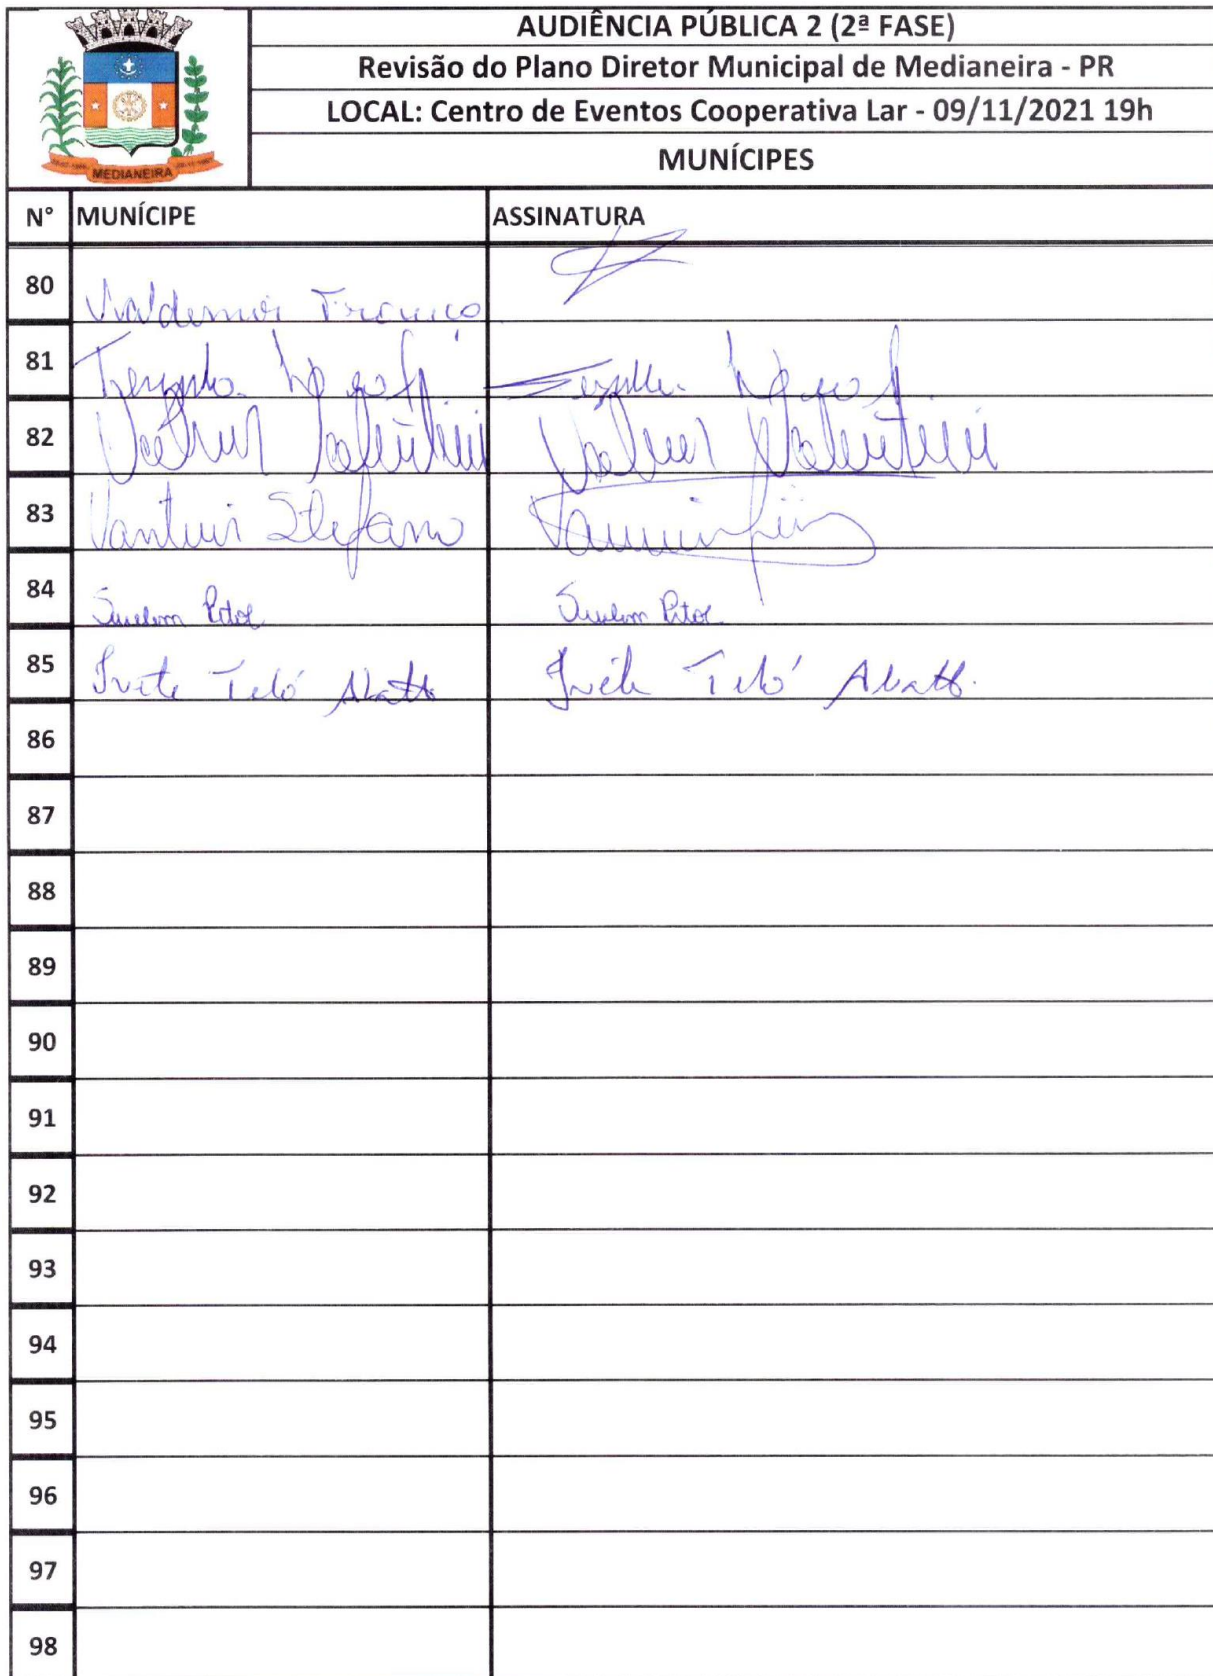 AUDIÊNCIA PÚBLICA 2 (2ª FASE)
Revisão do Plano Diretor Municipal de Medianeira - PR
LOCAL: Centro de Eventos Cooperativa Lar - 09/11/2021 19h
MUNÍCIPES
MEDIANEIRA
N° MUNÍCIPE ASSINATURA
80 Valdemir
81
82 Valentini Valentini
83 Vantuir Stefano
84 Suelem Pitol Suelem Pitol
85 Ivete Teló Abatti Ivete Teló Abatti.
86
87
88
89
90
91
92
93
94
95
96
97
98